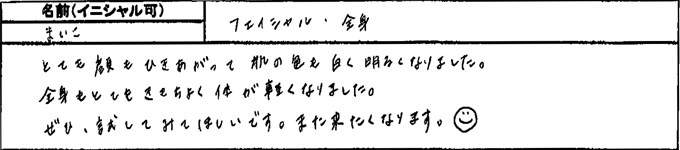 名前(イニシャル可)
まいこ
フェイシャル・全身
とても顔もひきあがって肌の色も白く明るくなりました。
全身もとてもきもちよく体が軽くなりました。
ぜひ、試してみてほしいです。また来たくなります。